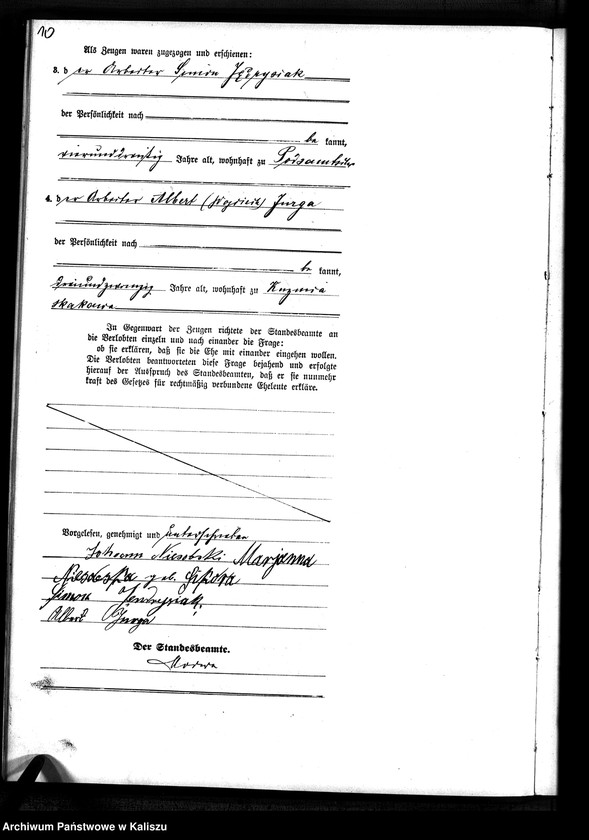 10
Als Zeugen waren zugezogen und erschienen:
3. der Arbeiter Simon
der Persönlichkeit nach
be kannt,
vierunddreißig Jahre alt, wohnhaft zu
4. der Arbeiter Albert Jurga
der Persönlichkeit nach
be kannt,
dreiundzwanzig Jahre alt, wohnhaft zu Kuznica
skakawa
In Gegenwart der Zeugen richtete der Standesbeamte an
die Verlobten einzeln und nach einander die Frage:
ob sie erklären, daß sie die Ehe mit einander eingehen wollen.
Die Verlobten beantworteten diese Frage bejahend und erfolgte
hierauf der Ausspruch des Standesbeamten, daß er sie nunmehr
kraft des Gesetzes für rechtmäßig verbundene Eheleute erkläre.
Vorgelesen, genehmigt und unterschrieben
Johann Marjanna
geb. Sikora
Simon
Albert Jurga
Der Standesbeamte.
Archiwum Państwowe w Kaliszu